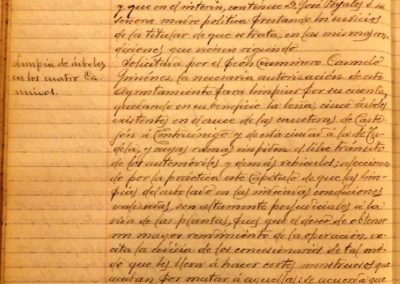 y que en el interin, continúe D. José Pagalés ó su
señora madre política prestando los servicios
de la titular de que se trata, en las mismas con-
diciones que vienen rigiendo.
Limpia de árboles
en los cuatro Ca-
minos.
Solicitada por el peón Caminero Carmelo
Jiménez la necesaria autorización de este
Ayuntamiento para limpiar por su cuenta,
quedando en su beneficio la leña, cinco árboles
existentes en el cruce de las carreteras de Caste-
jón á Cintruénigo y de esta ciudad á la de Tu-
dela, y cuyas ramas impiden el libre tránsito
de los automóviles y demás vehículos; aleccionа-
do por la práctica este Capítulo de que las lim-
pias del arbolado en las mismas condiciones
son altamente perjudiciales á la
vida de las plantas, pues que el deseo de obtener
un mayor rendimiento de la operación, ex-
cita la codicia de los concesionarios de tal mo-
do que les lleva á hacer cortes monstruosos que
acaban por matar á aquellas; se acuerda que